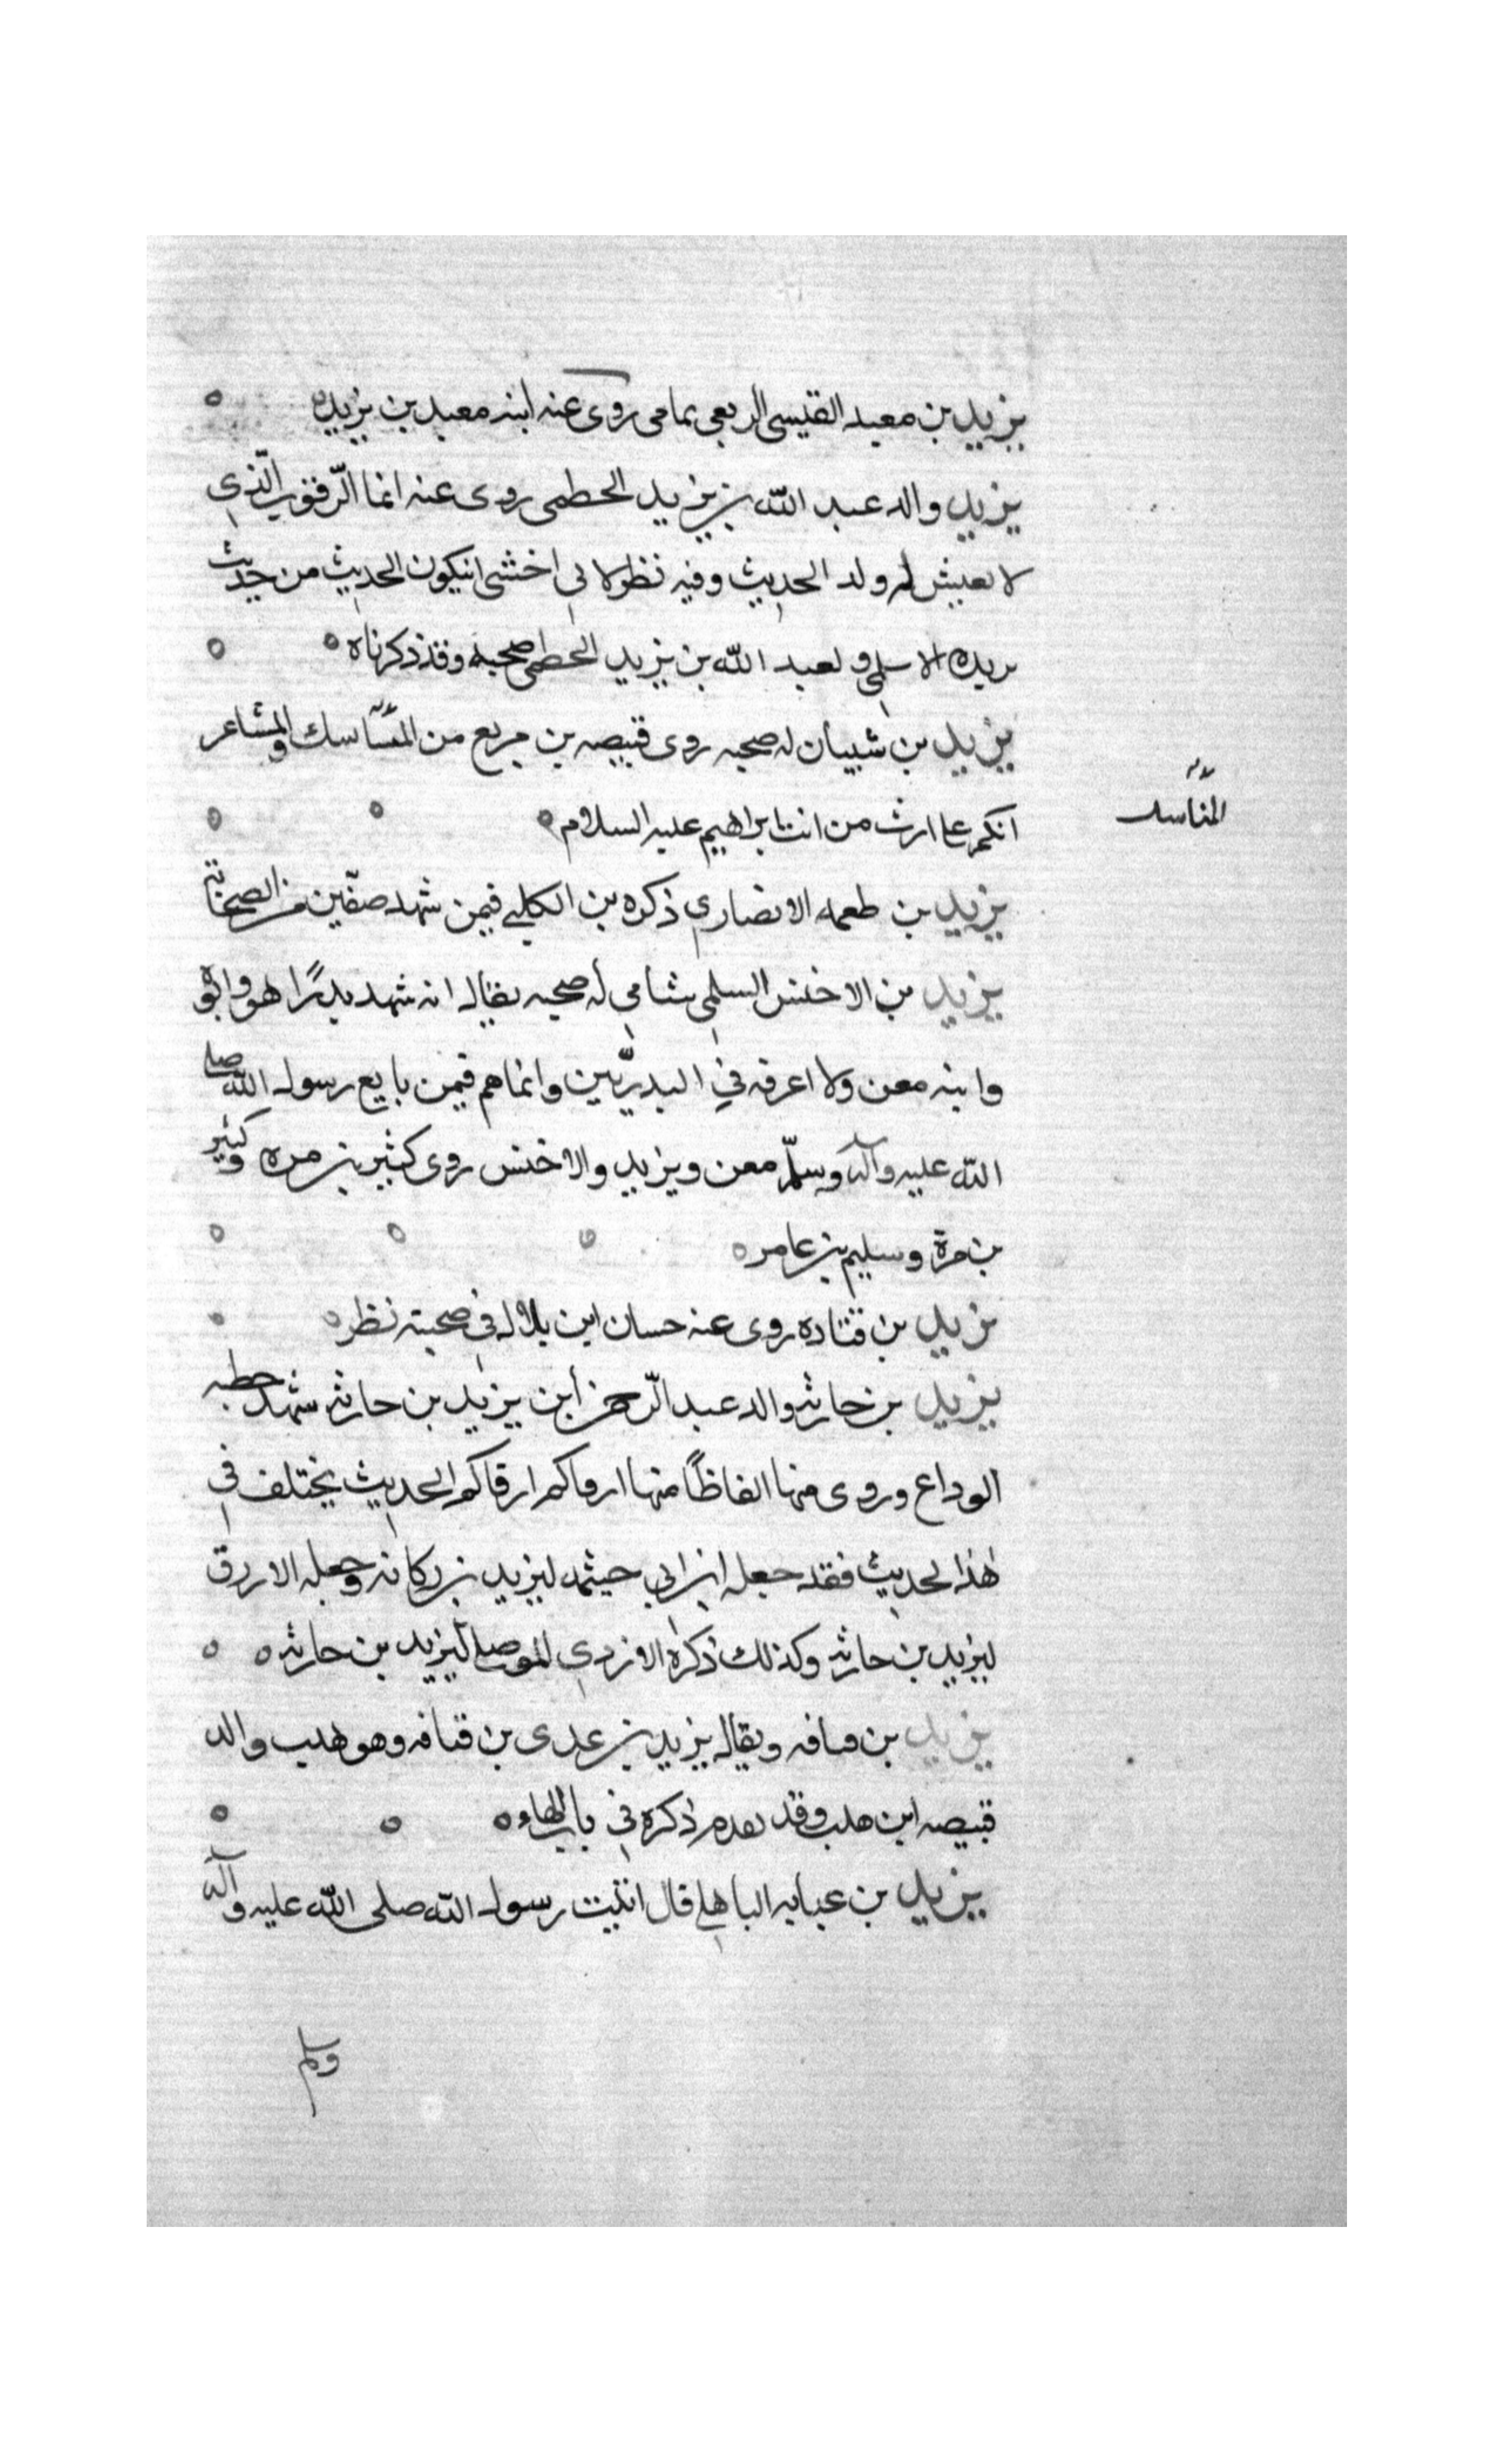 يزيد بن معبد القيسى الربعى يمامى روى عنه ابنه معبد بن يزيد
يزيد والد عبد الله بن يزيد الخطمى روى عنه انما الرّقوب الّذى
لا يعيش له ولد الحديث وفيه نظر لانى اخشى انيكون الحديث من حديث
بريده الاسلمى ولعبد الله بن يزيد الخطمى صحبه وقد ذكرناه
يزيد بن شيبان له صحبه روى قبيصه بن مربع من المناسك والمشاعر
المناسك
انكم على ارث من ابراهيم عليه السلام
يزيد بن طعمه الانصارى ذكره بن الكلبى فيمن شهد صفّين من الصحابة
يزيد بن الاخنس السلمى شامى له صحبه يقال انه شهد بدرًا هو وابوه
وابنه معن ولا اعرفه في البدريّين وانما هم فيمن بايع رسول الله صلى
الله عليه وآله وسلّم معن ويزيد والاخنس روى كثير بن مره وكثير
بن مرة وسليم بن عامر
يزيد بن قتاده روى عنه حسان ابن بلال فى صحبته نظر
يزيد بن حارثه والد عبد الرّحمن أبن يزيد بن حارثه شهد خطبه
الوداع وروى منها الفاظًا منها ارقاكم ارقاكم الحديث يختلف فى
هٰذا لحديث فقد جعله ابن ابى خيثمه ليزيد بن ركانه وجعله الازرق
ليزيد بن حارثه وكذلك ذكره الازدى الموصلى ليزيد بن حارثه
يزيد بن قنافه ويقال يزيد بن عدى بن قنافه وهو هلب والد
قبيصه ابن هلب وقد تقدم ذكره فى باب الهاء
يزيد بن عبايه الباهلى قال اتيت رسول الله صلى الله عليه وآله
وسلم